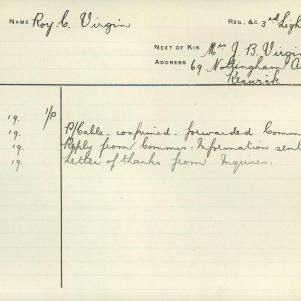 NAME Roy C. Virgin REG. &C. 3rd Ligh
NEXT OF KIN Mrs J. B. Virgin
ADDRESS 69 Nottingham A
Keswick
19. 1/P
19. P/Cable - confirmed - forwarded Comm
19. Reply from Commrs. Information sent
19. Letter of thanks from Inquirer.